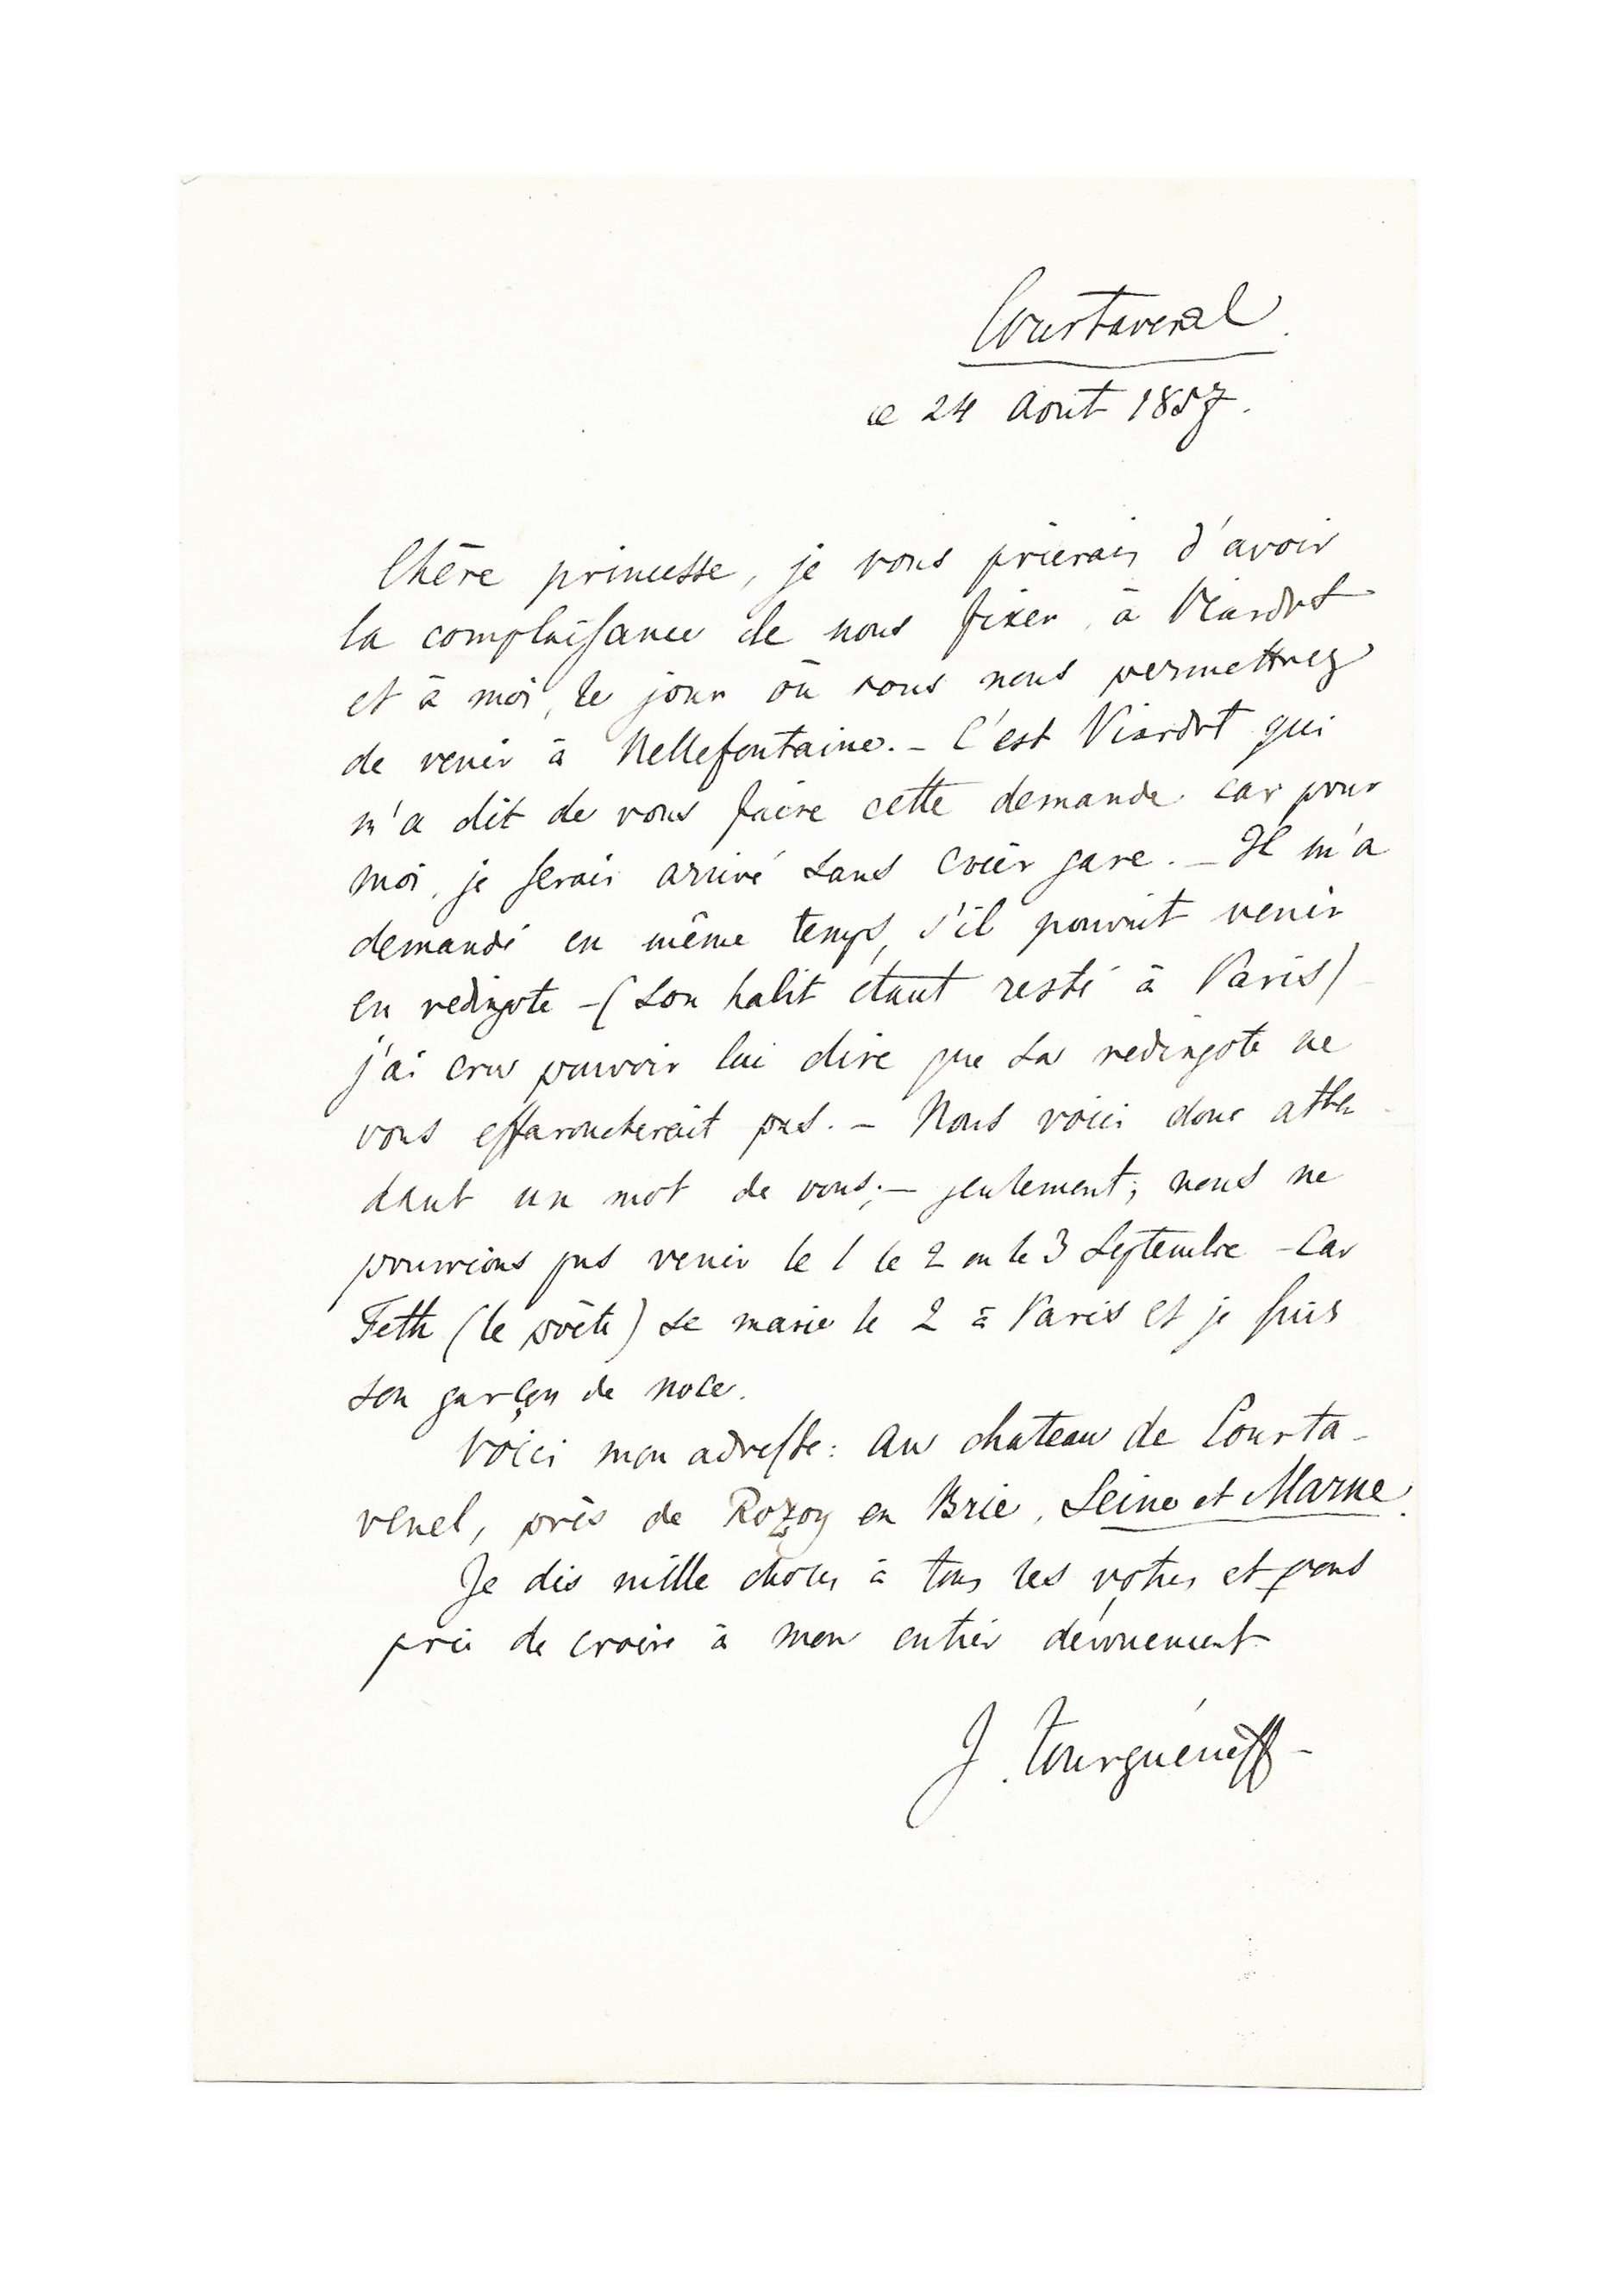 Courtavenel.
ce 24 Août 1857.
Chère princesse, je vous prierais d'avoir
la complaisance de nous fixer, à Viardot
et à moi, le jour où vous nous permettrez
de venir à Bellefontaine. – C'est Viardot qui
m'a dit de vous faire cette demande car pour
moi, je serais arrivé sans crier gare. – Il m'a
demandé en même temps, s'il pouvait venir
en redingote – (son habit étant resté à Paris)
j'ai cru pouvoir lui dire que sa redingote ne
vous effaroucherait pas. – Nous voici donc atten-
dant un mot de vous; – seulement, nous ne
pourrions pas venir le 1 le 2 ou le 3 Septembre – Car
Feth (le poète) se marie le 2 à Paris et je suis
son garçon de noce.
Voici mon adresse: au chateau de Courta-
venel, près de Rozoy en Brie, Seine et Marne.
Je dis mille choses à tous les votres et vous
prie de croire à mon entier dévouement
J. Tourguéneff –